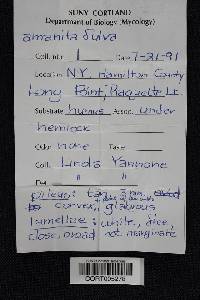 SUNY CORTLAND
Department of Biology (Mycology)
amanita fulva
Coll. nr. 1 Date 7-21-91
Location N.Y. Hamilton County
Long Point, Raquette Lk
Substrate humus Assoc. under
hemlock
Odor none Taste
Coll. Linda Yannone
Det. " "
pileus: tan, 3 mm,
convex, glabrous
lamellae: white, free,
close, broad, not marginate
CORT005276